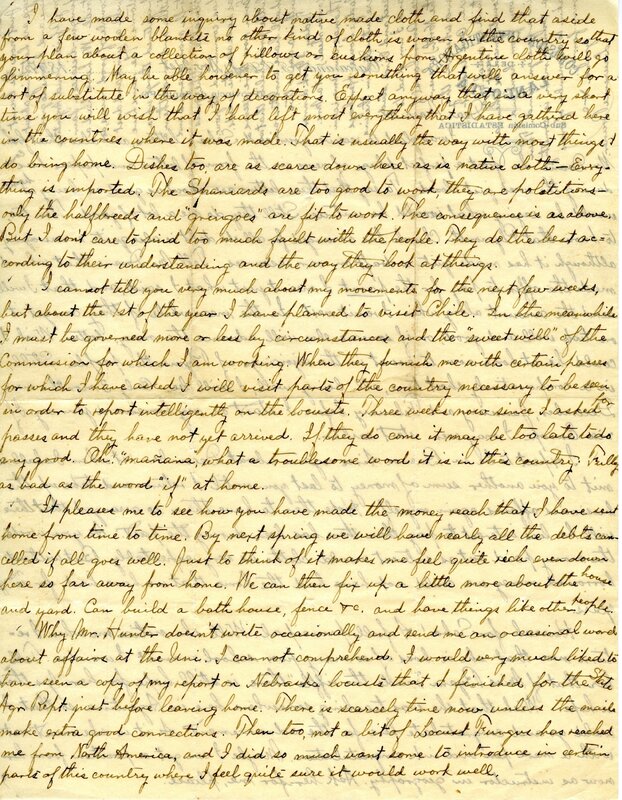 I have made some inquiry about native made cloth and find that aside
from a few wooden blankets no other kind of cloth is woven in the country, so that
your plan about a collection of pillows or cushions from Argentine cloth will go
glimmering. May be able however to get you something that will answer for a
sort of substitute in the way of decorations. Expect anyway that in a very short
time you will wish that I had left most everything that I have gathered here
in the countries where it was made. That is usually the way with most things I
do bring home. Dishes too, are as scarce down here as is native cloth—Evry-
thing is imported. The Spaniards are too good to work, they are politicians—
only the halfbreeds and "gringoes" are fit to work. The consequence is as above.
But I don't care to find too much fault with the people. They do the best ac-
cording to their understanding and the way they look at things.
I cannot tell you very much about my movements for the next few weeks,
but about the 1st of the year I have planned to visit Chile. In the meanwhile
I must be governed more or less by circumstances and the "sweet will" of the
Commission for which I am working. When they furnish me with certain passes
for which I have asked I will visit parts of the country necessary to be seen
in order to report intelligently on the locusts. Three weeks now since I asked for
passes and they have not yet arrived. If they do come it may be too late to do
any good. Oh! "mañana", what a troublesome word it is in this country! Fully
as bad as the word "if" at home.
It pleases me to see how you have made the money reach that I have sent
home from time to time. By next spring we will have nearly all the debts can-
celled if all goes well. Just to think of it makes me feel quite rich even down
here so far away from home. We can then fix up a little more about the house
and yard. Can build a bath house, fence &c. and have things like other people.
Why Mr. Hunter doesn't write occasionally and send me an occasional word
about affairs at the Uni. I cannot comprehend. I would very much liked to
have seen a copy of my report on Nebraska locusts that I finished for the State
Agr. Rept. just before leaving home. There is scarcely time now unless the mails
make extra good connections. Then too, not a bit of Locust Fungus has reached
me from North America, and I did so much want some to introduce in certain
parts of this country where I feel quite sure it would work well.